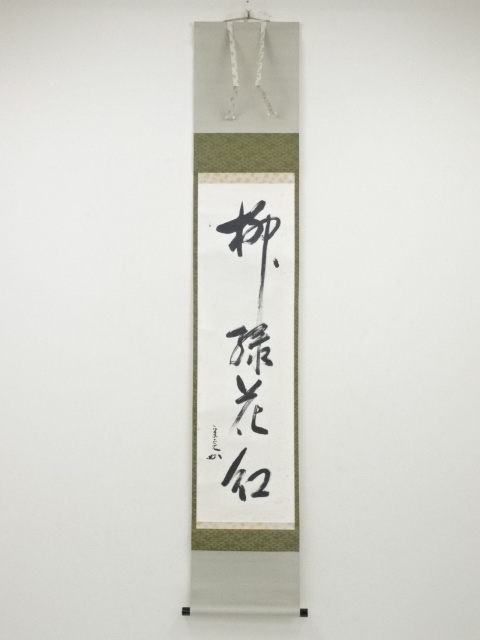 柳緑花紅